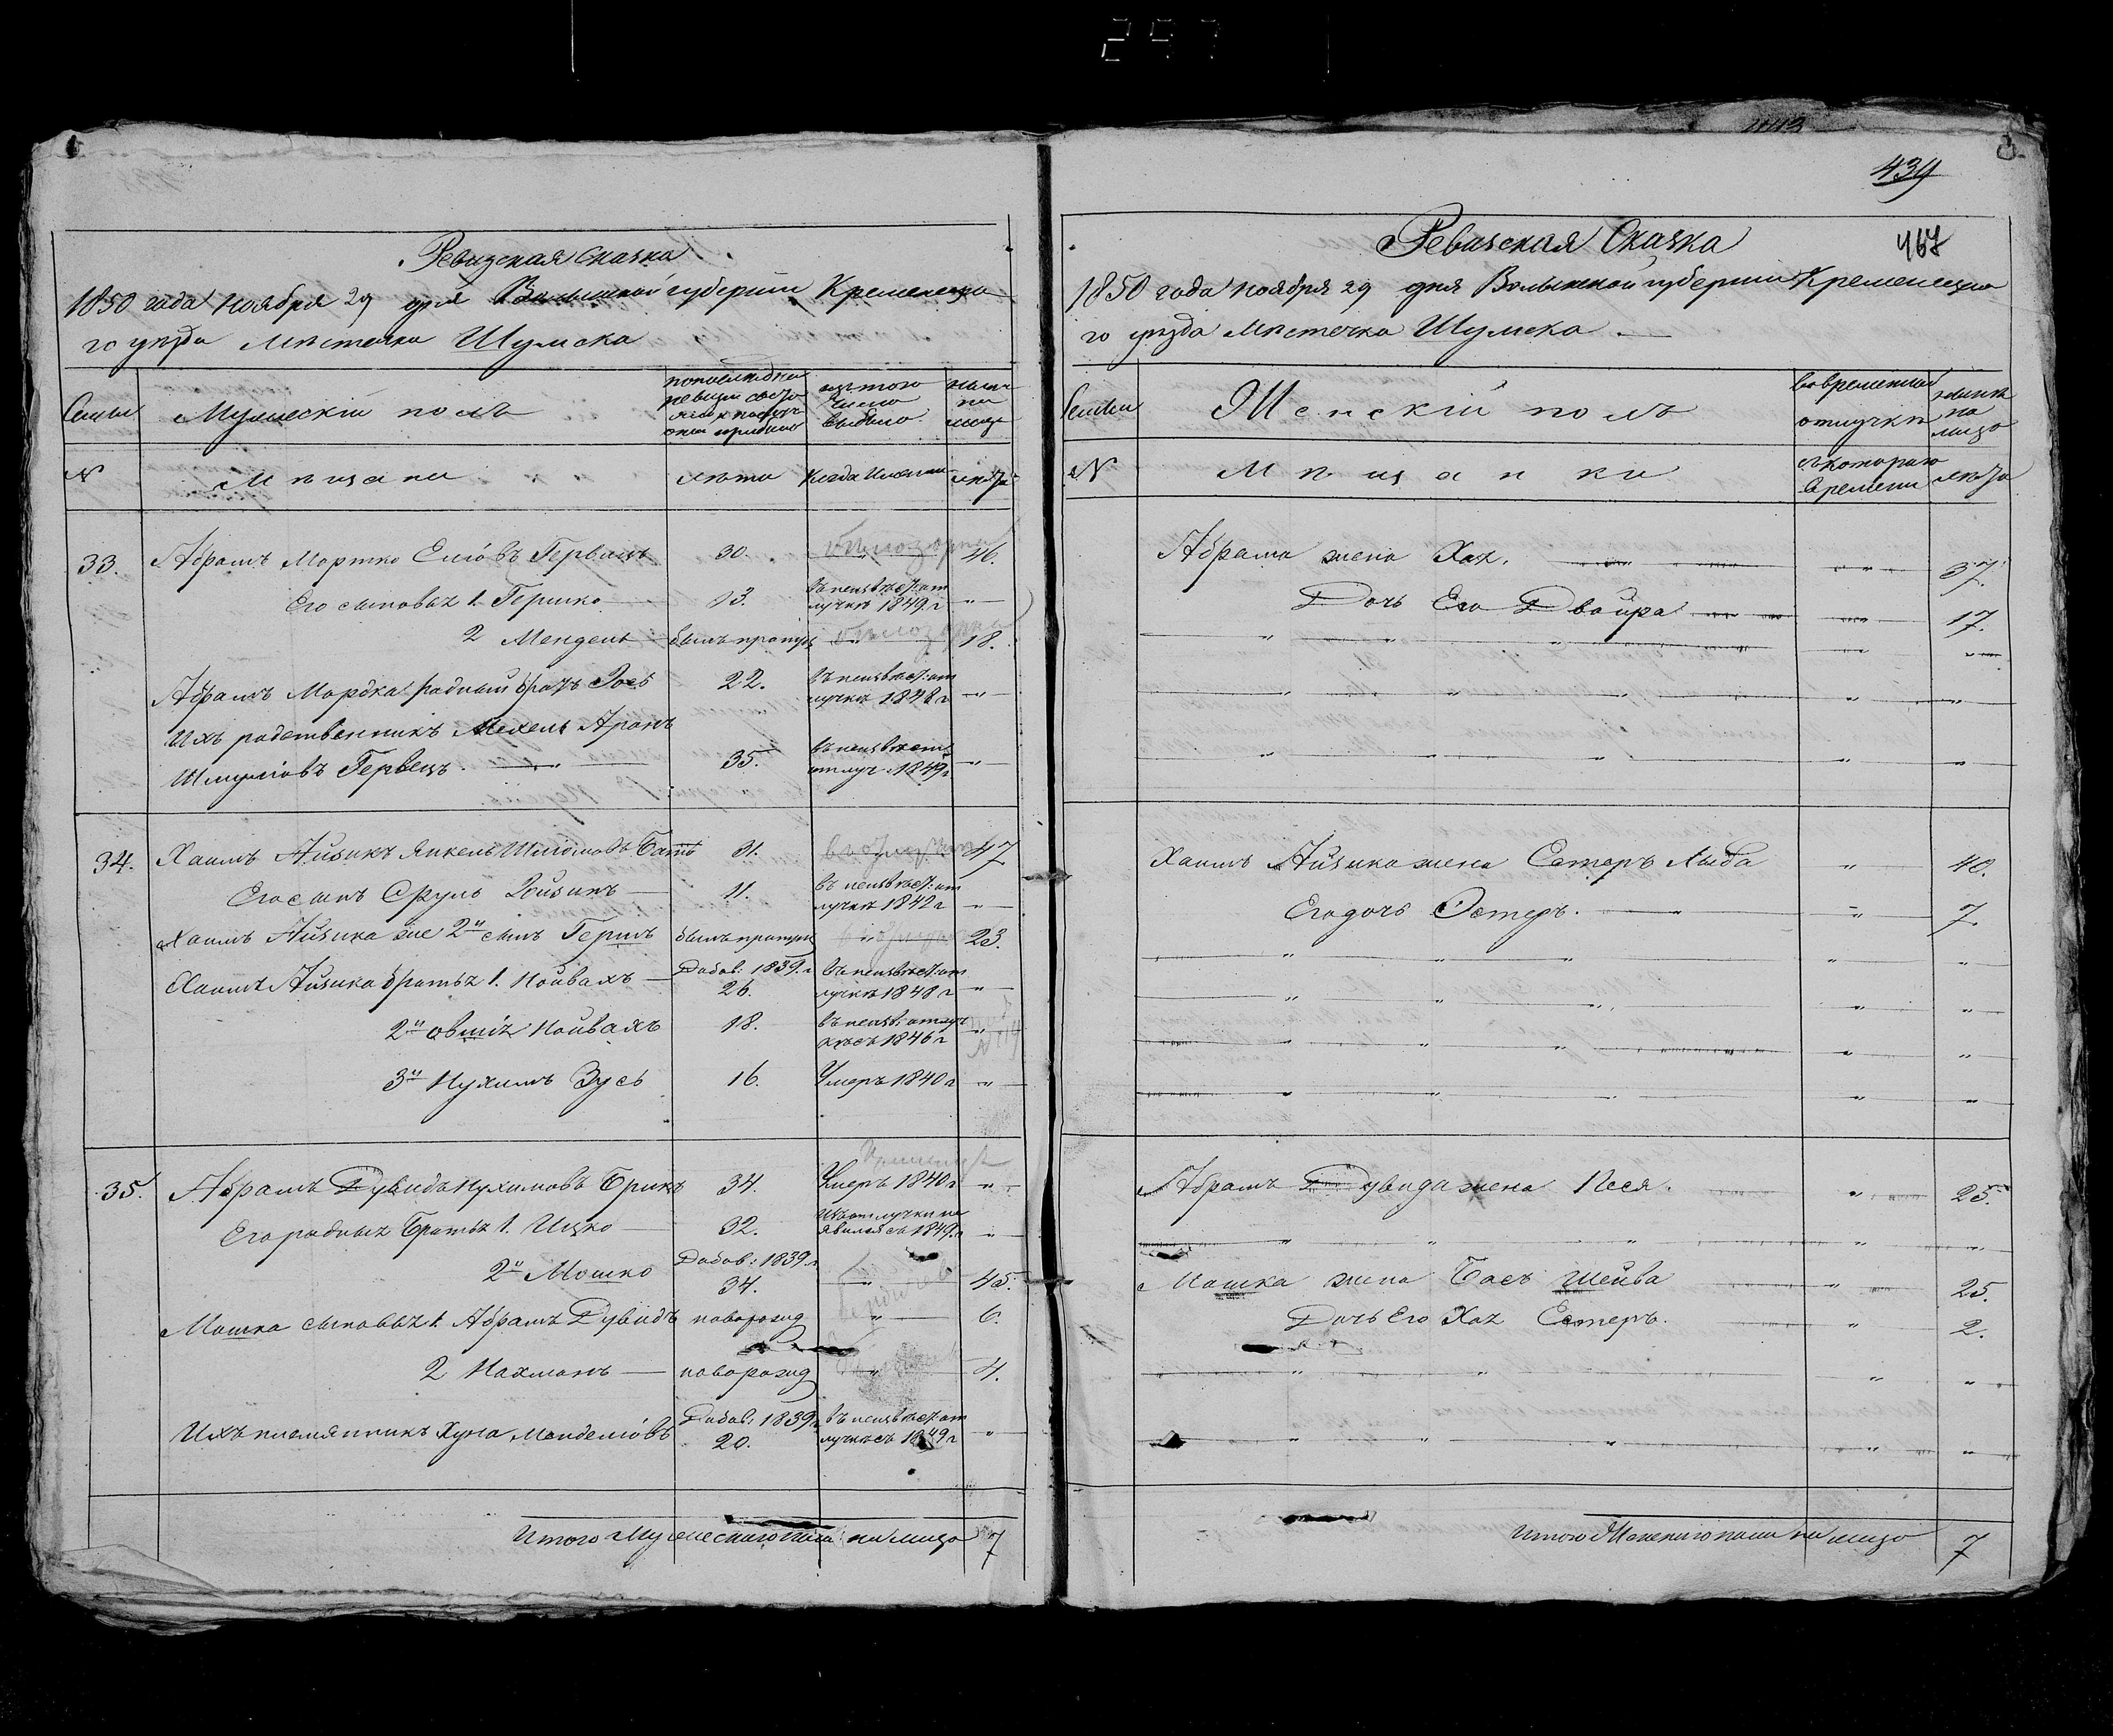 297
Ревизская сказка
1850 года Ноября 29 дня Волынской губернии Кременецка
го уезда Местечка Шумска
Семьи
Мужеский полъ
по последней
ревизии состо
яло и после
оной прибыло
изъ того
числа
выбыло
ныне
на
лицо
№
Мещане
лета
Когда Именно
лета
33.
Абрамъ Мортко Елiовъ Гервецъ
30.
46.
Его сыновья 1. Гершко
13.
въ неизвест: от
лучке 1849 г
"
2 Мендель
былъ пропущ
"
18.
Абрамъ Мордка родный братъ Iось
22.
въ неизвест: от
лучке 1848 г
"
Ихъ родственникъ Мехель Аронъ
Шмулiовъ Гервецъ.
35.
въ неизвест
отлуч. 1849 г
"
34.
Хаимъ Айзикъ Янкель Шлiомовъ
31.
47
Его сынъ Сруль Рейзинъ
11.
въ неизвест: от
лучке 1842 г
"
Хаимъ Айзика же 2й сынъ Гершъ
былъ пропущ
"
23.
Хаимъ Айзика братья 1. Нойвахъ
Добав: 1839. г
26.
въ неизвест: от
лучке 1848 г
"
2й Нойвахъ
18.
въ неизв: отлуч
ке съ 1846 г
"
3й Нухимъ Зусь
16.
Умеръ 1840 г
"
35.
Абрамъ Дувидъ Нухимовъ Брикъ
34.
Умеръ 1840 г
"
Его родныя Братья 1. Ицко
32.
Изъ отлучки не
явился съ 1849. г
"
2й Мошко
Добав: 1839. г
34.
"
45.
Мошка сыновья 1. Абрамъ Дувидъ
новорожд
"
6.
2 Нахманъ
новорожд
"
4.
Ихъ племянникъ Хуна Менделiовъ
Добав: 1839 г
20.
въ неизвест от
лучке съ 1849 г
"
Итого Мужескаго пола на лицо
7
439
467
Ревизская Сказка
1850 года Ноября 29 дня Волынской губернии Кременецка
го уезда Местечка Шумска
Семьи
Женский полъ
во временной
отлучке
ныне
на
лицо
№
Мещанки
съ котораго
времени
лета
Абрама жена Хая.
37.
Дочь Его Двойра
17.
Хаимъ Айзика жена Естеръ Либа
"
40.
Его дочь Эстеръ.
"
7.
Абрамъ Дувида жена Песя.
"
25.
Мошка жена Бась Шейва
"
25.
Дочь Его Хая Естеръ.
"
2.
Итого Женскаго пола на лицо
7